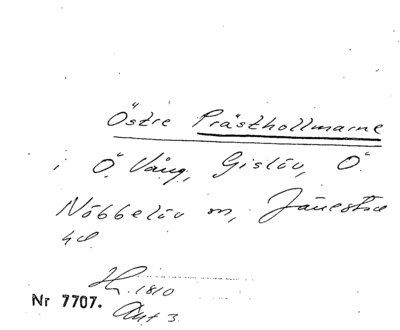 Östre Prästhollmarne
i Ö. Vång, Gislöv, Ö.
Nöbbelöv sn, Järrestads
hd.
1810
Nr 7707. Akt 3.